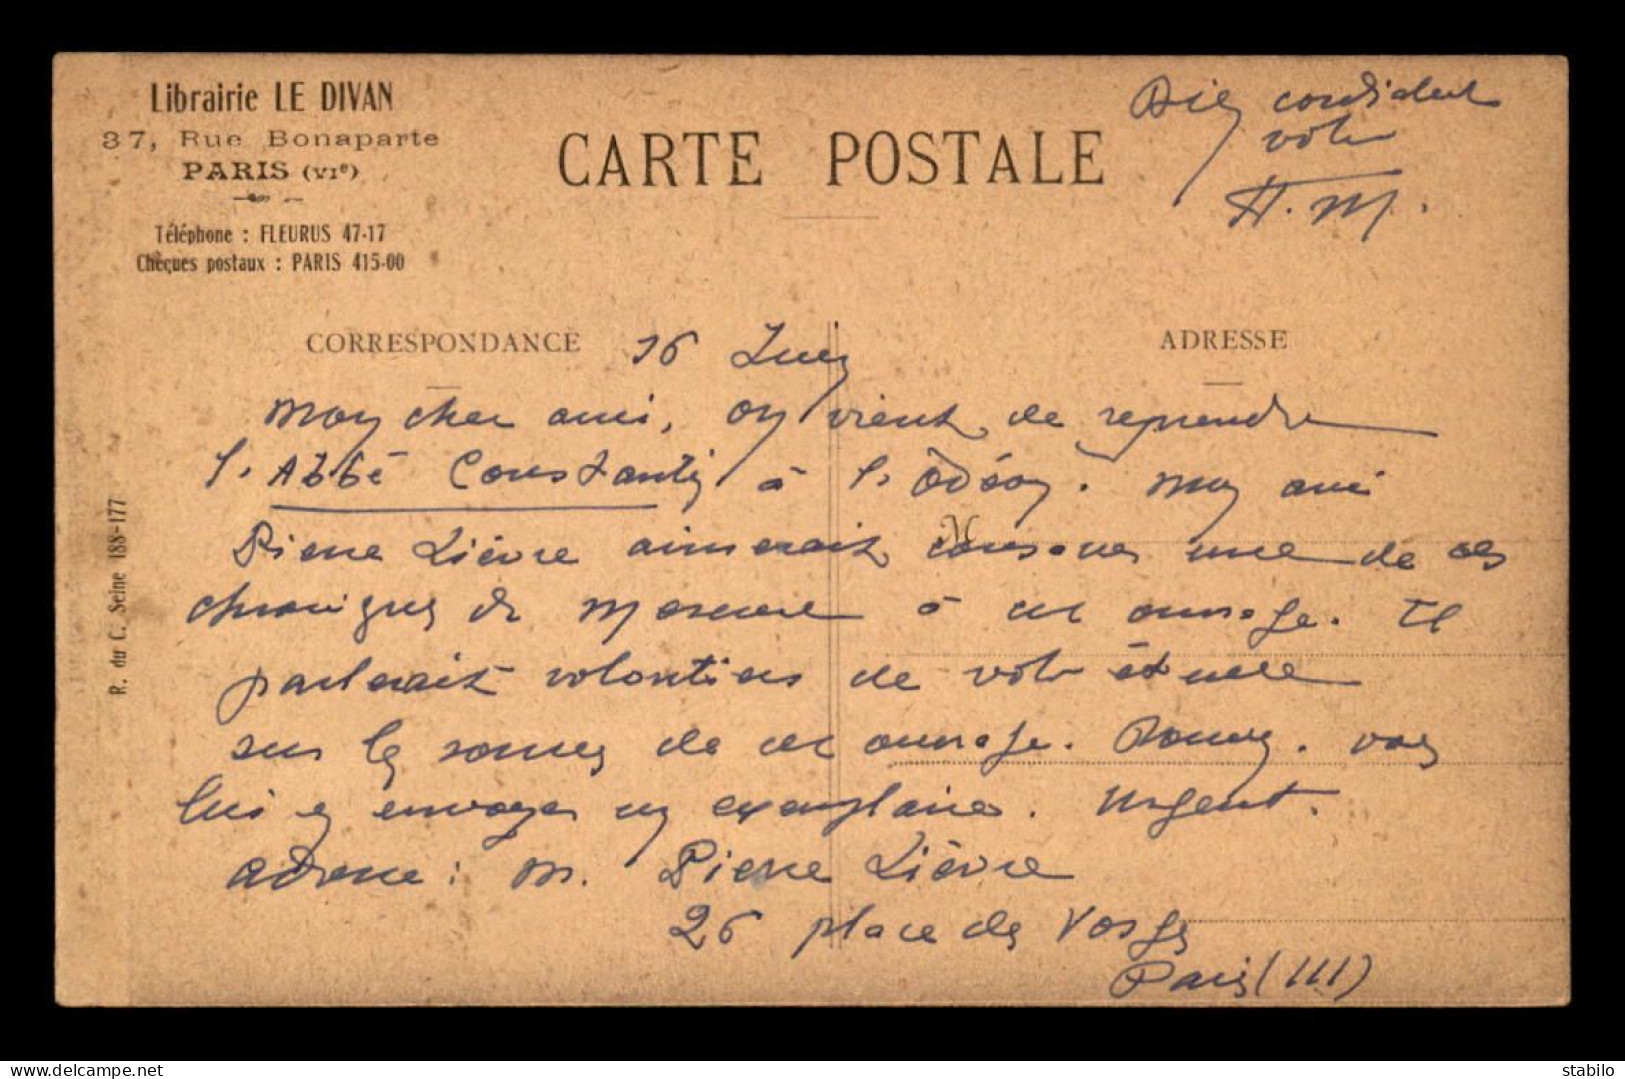 Librairie LE DIVAN
37, Rue Bonaparte
PARIS (VIe)
Téléphone : FLEURUS 47-17
Chèques postaux : PARIS 415-00
CARTE POSTALE
Bien cordialement
votre
H. M.
CORRESPONDANCE
ADRESSE
16 Juin
Mon cher ami, on vient de reprendre
l'Abbé Constantin à l'Odéon. Mon ami
M
Pierre Lièvre aimerait consacrer une de ses
chroniques du Mercure à cet ouvrage. Il
parlerait volontiers de votre étude
sur les sources de cet ouvrage. Pouvez-vous
lui en envoyer un exemplaire. Urgent.
adresse : M. Pierre Lièvre
26 place des Vosges
Paris (III)
R. du C. Seine 188-177
delcampe.net
stabilo